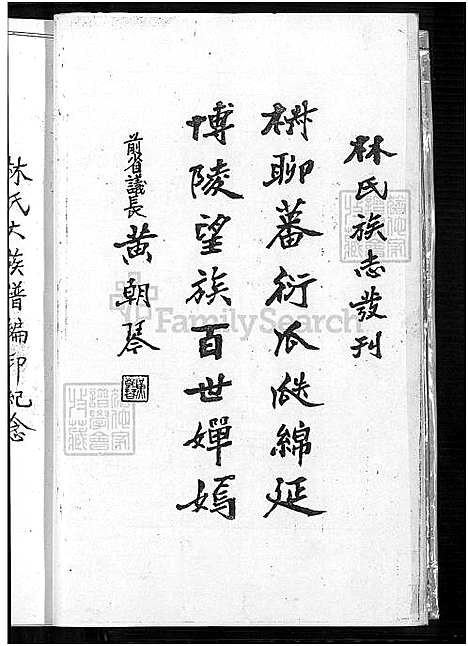 林氏族志發刊
椒聊蕃衍瓜瓞綿延
博陵望族百世嬋嫣
前省議長 黃朝琴
林氏大族譜編印紀念
FamilySearch